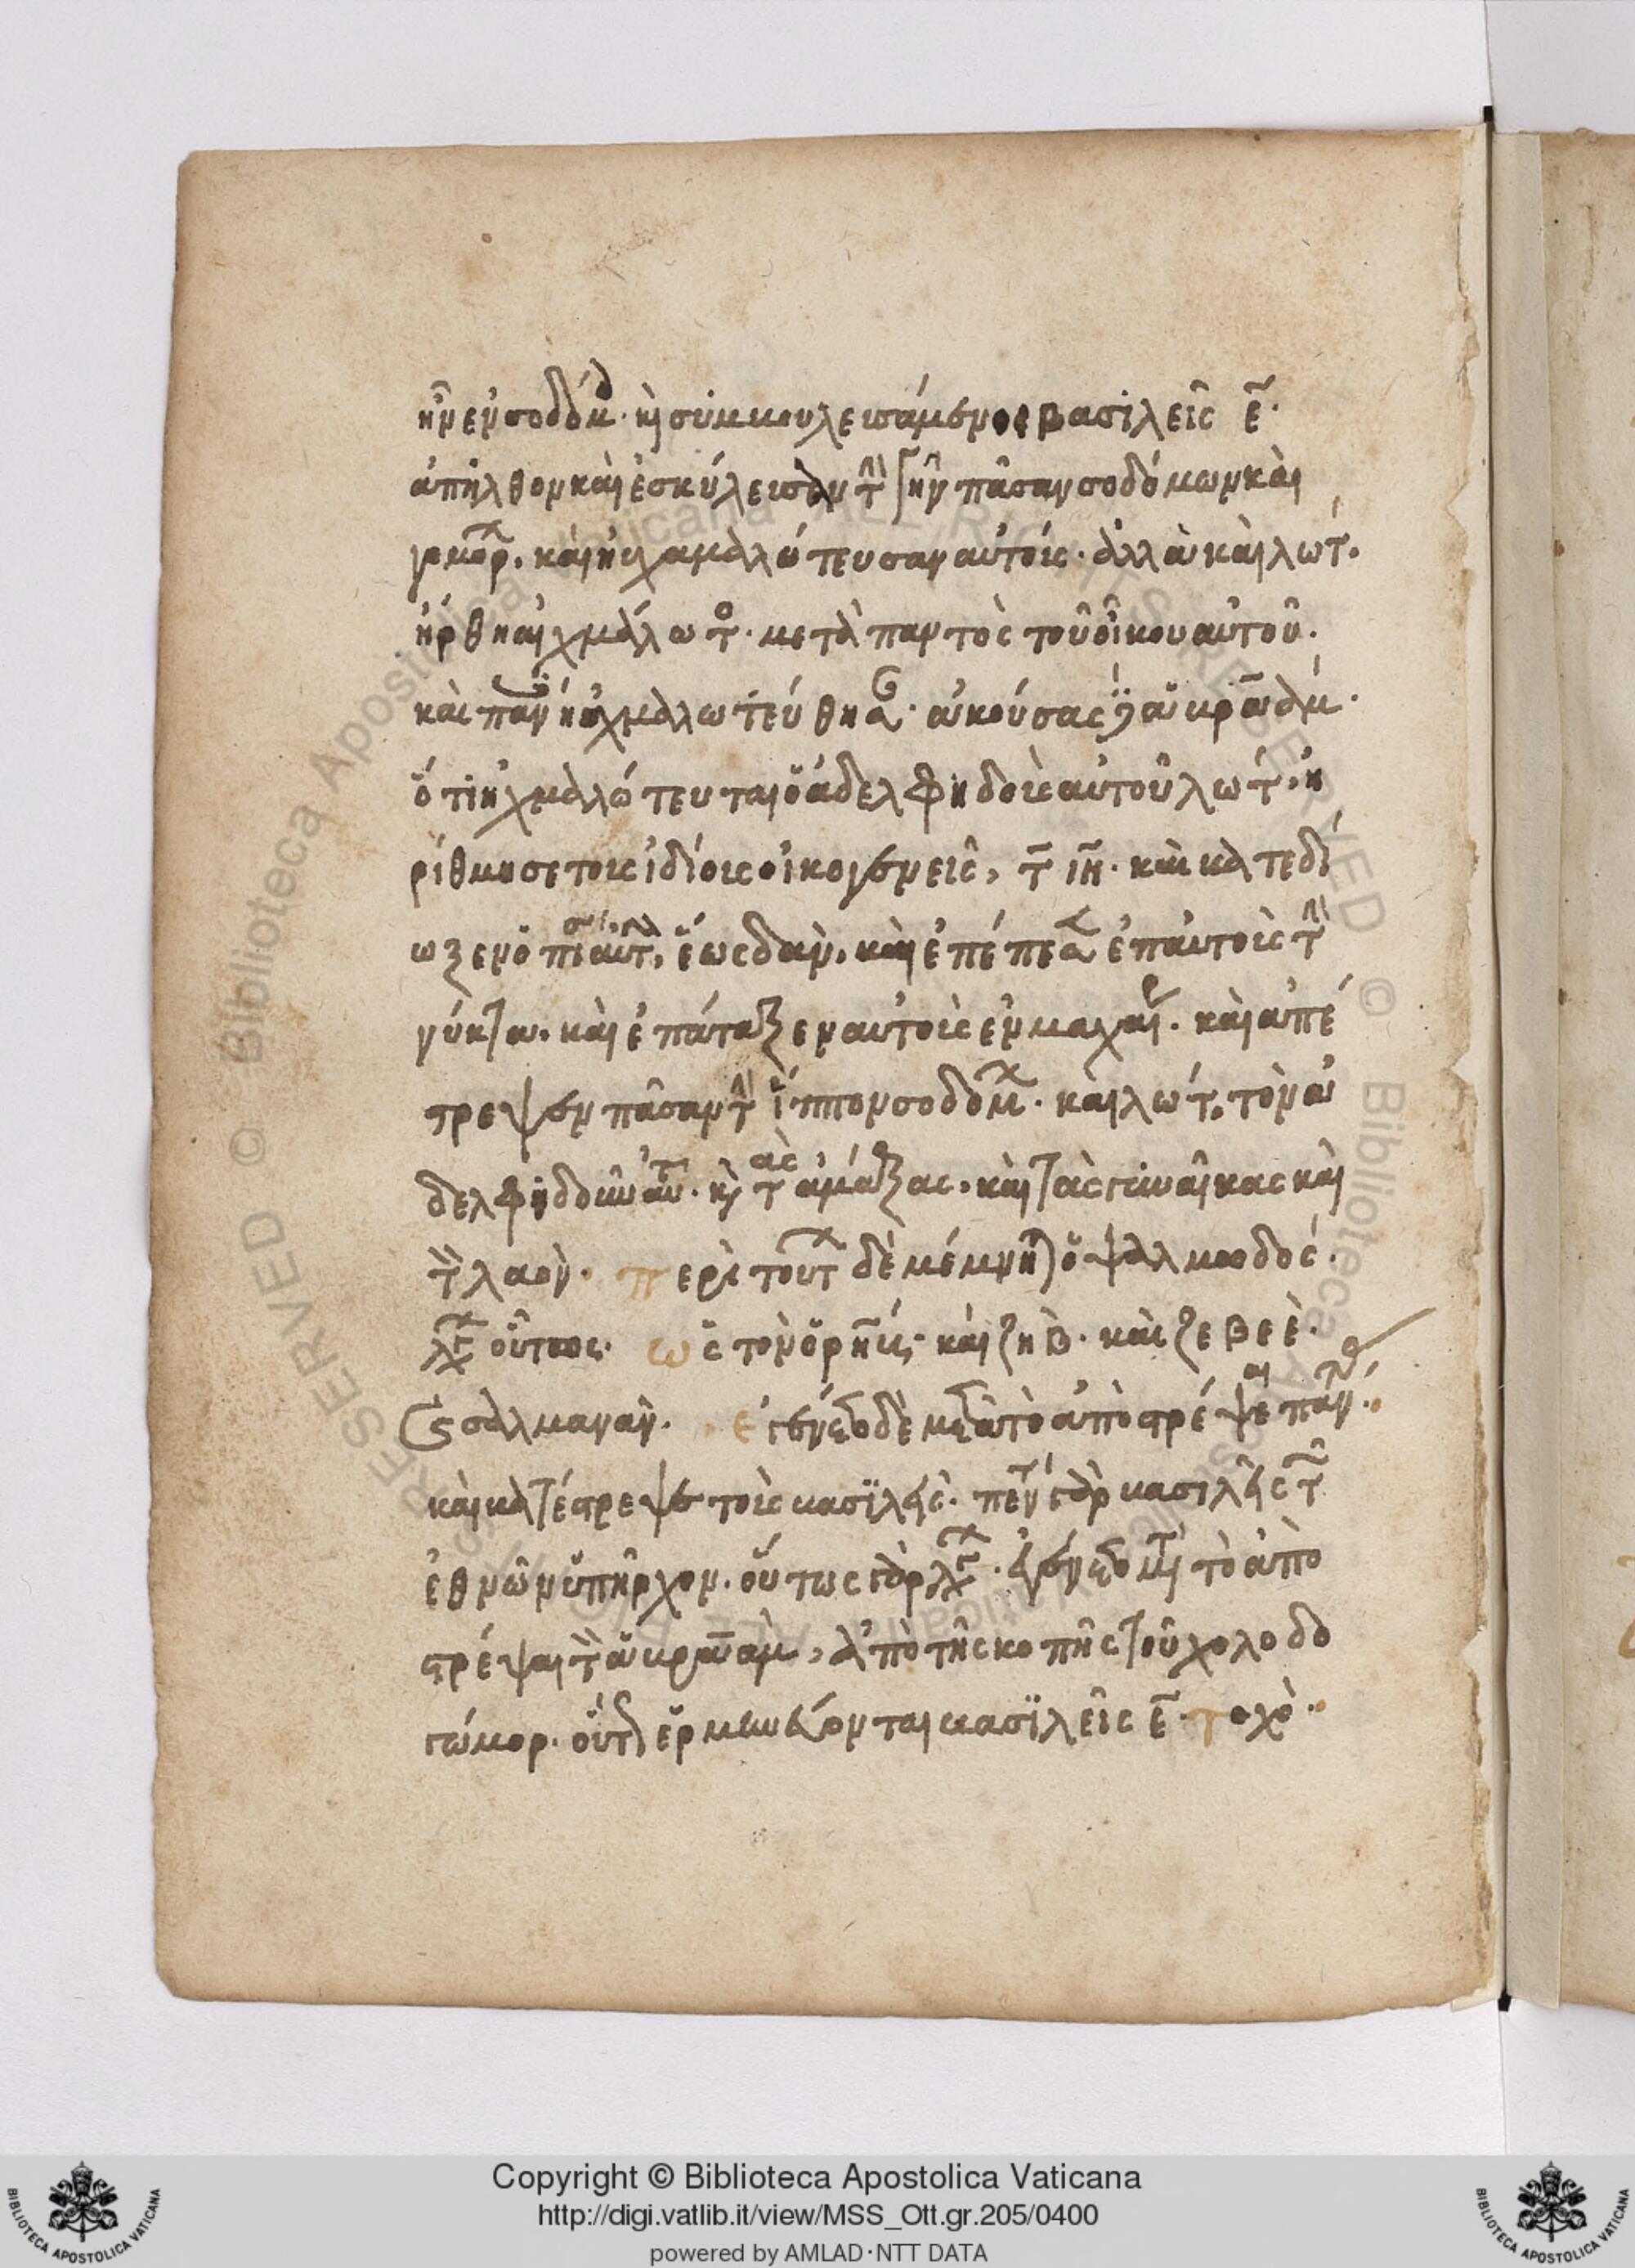 ἦν ἐν σοδόμ. κ συμβουλευσάμενος βασιλεῖς ε̅.
ἀπῆλθον καὶ ἐσκύλευσαν τ γῆν πᾶσαν σοδόμων καὶ
γομορ. καὶ ἠχαμαλώτευσαν αὐτοὺς. ἀλλὰ καὶ λώτ.
ἤρθη αἰχμάλωτο. μετὰ παντὸς τοῦ οἴκου αὐτοῦ.
ἀκούσας ἀβραάμ.
ὅτι ἠχμαλώτευται ὁ ἀδελφηδοὺς αὐτοῦ λώτ, ἠ
ρίθμησε τοὺς ἰδίους οἰκογενεῖς, τ̅ ι̅η̅. καὶ κατεδί
ωξεν ὀπίσ αὐτ, ἕως δὰν. καὶ ἐπέπεσ ἐπ αὐτοὺς τ
νύκτα. καὶ ἐπάταξεν αὐτοὺς ἐν μαχαίρ. καὶ ἀπέ
στρεψεν πᾶσαν τ ἵππον σοδομ. καὶ λώτ. τὸν ἀ
δελφηδοῦν αὐτ. κ τὰς ἁμάξας. καὶ τὰς γυναῖκας καὶ
τ λαόν. περὶ τούτ δὲ μέμνητ ὁ ψαλμωδός.
λέγ οὕτως. ὡς τὸν ὀρὴβ. καὶ ζὴβ. καὶ ζεβεὲ.
κ σαλμανὰν. ἐγένετο δὲ μετὰ τὸ ἀποστρέψαι
καὶ κατέστρεψε τοὺς βασϊλεῖς. πέντε γὰρ βασιλεῖς τ
ἐθνῶν ὑπῆρχον. οὕτως γὰρ λέγ. ἐγένετο μετ τὸ ἀπο
στρέψαι τ ἀβραάμ, ἀπὸ τῆς κοπῆς τοῦ χολοδο
γώμορ. οὕτ ἑρμηνεύονται βασϊλεῖς ε̅. τοχὸ.
Copyright © Biblioteca Apostolica Vaticana
http://digi.vatlib.it/view/MSS_Ott.gr.205/0400
powered by AMLAD·NTT DATA